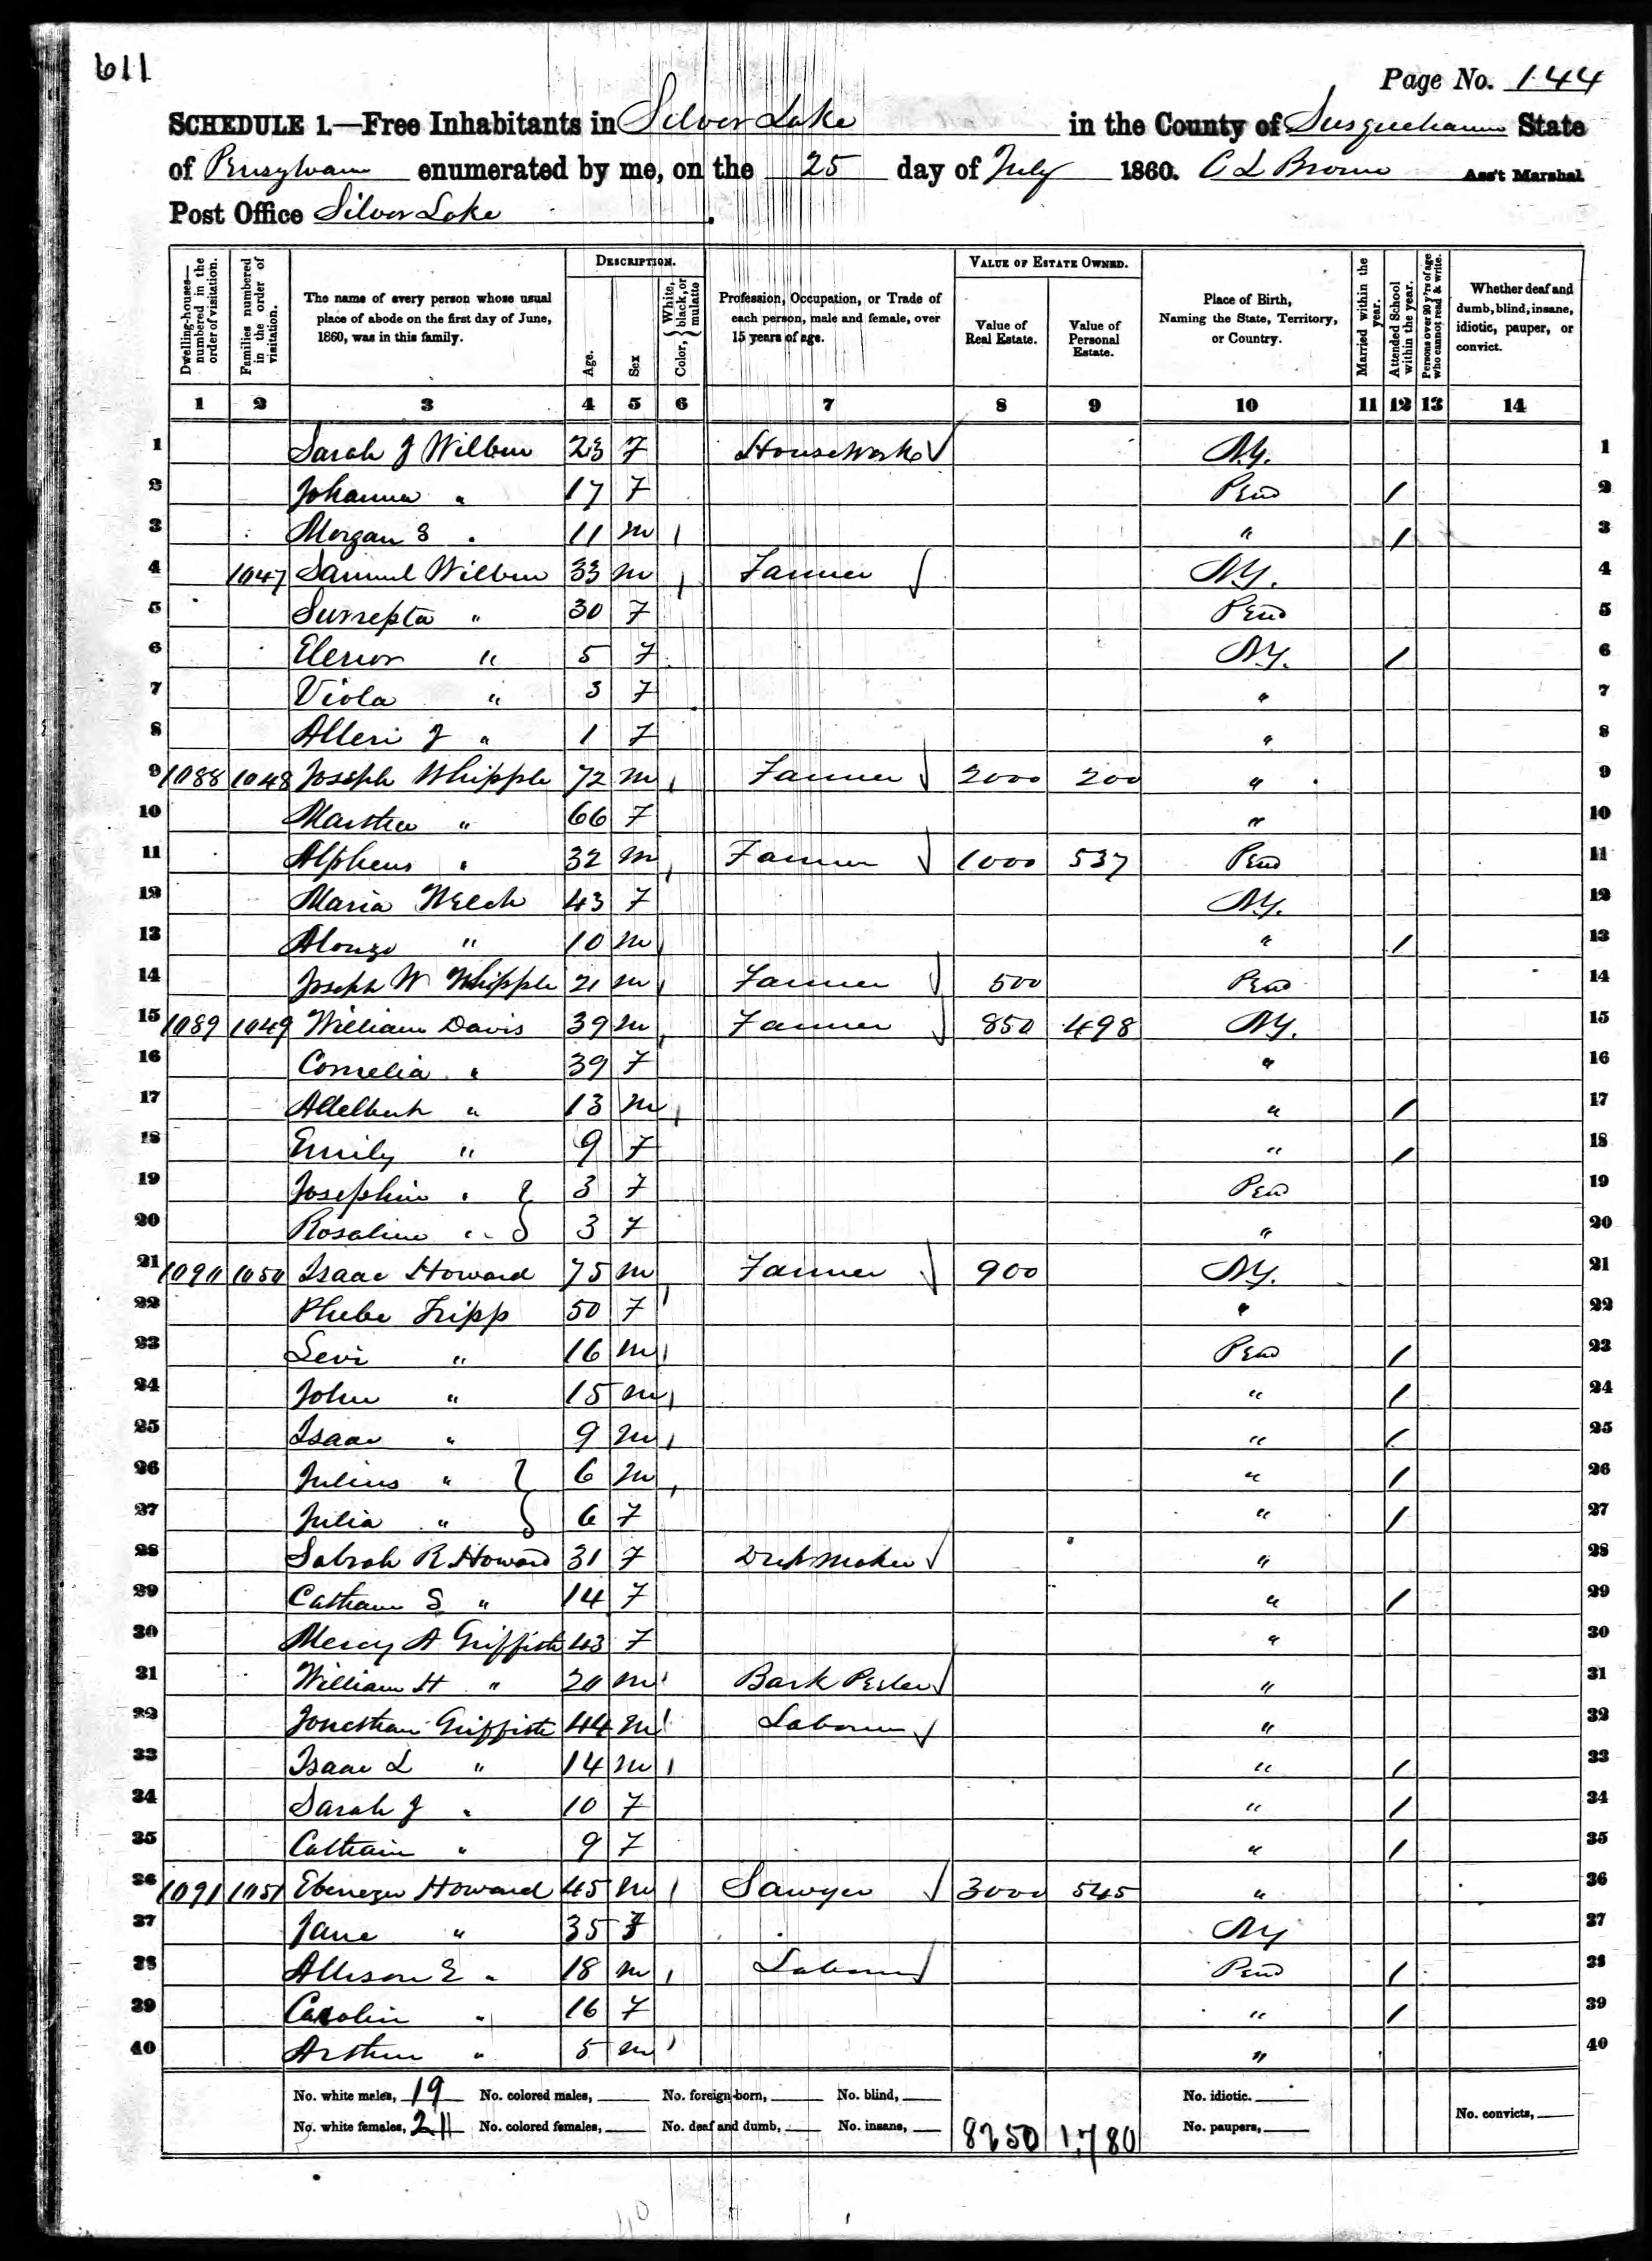 611
Page No. 144
SCHEDULE 1.—Free Inhabitants in Silver Lake in the County of Susquehanna State
of Pensylvan enumerated by me, on the 25 day of July 1860. C L Brown Ass't Marshal
Post Office Silver Lake.
Dwelling-houses—numbered in the order of visitation.
Families numbered in the order of visitation.
The name of every person whose usual place of abode on the first day of June, 1860, was in this family.
DESCRIPTION.
Age.
Sex
Color, { White, black, or mulatto
Profession, Occupation, or Trade of each person, male and female, over 15 years of age.
VALUE OF ESTATE OWNED.
Value of Real Estate.
Value of Personal Estate.
Place of Birth, Naming the State, Territory, or Country.
Married within the year.
Attended School within the year.
Persons over 20 y'rs of age who cannot read & write.
Whether deaf and dumb, blind, insane, idiotic, pauper, or convict.
1 2 3 4 5 6 7 8 9 10 11 12 13 14
1 Sarah J Wilbur 23 F Housework N.Y. 1
2 Johanna " 17 F Pen / 2
3 Morgan S " 11 m Pen " / 3
4 1047 Samuel Wilbur 33 m Farmer N.Y. 4
5 Surrepta " 30 F Pen 5
6 Elenor " 5 F N.Y. / 6
7 Viola " 3 F " 7
8 J " 1 F " 8
9 1088 1048 Joseph Whipple 72 m Farmer 2000 200 " 9
10 Martha " 66 F " 10
11 Alpheus " 32 m Farmer 1000 537 Pen 11
12 Maria Welch 43 F N.Y. 12
13 Alonzo " 10 m " / 13
14 Joseph W Whipple 21 m Farmer 500 Pen 14
15 1089 1049 William Davis 39 m Farmer 850 498 N.Y. 15
16 Cornelia " 39 F " 16
17 Adelbert " 13 m " / 17
18 Emily " 9 F " / 18
19 Josephin " } 3 F Pen 19
20 Rosaline " } 3 F " 20
21 1090 1050 Isaac Howard 75 m Farmer 900 N.Y. 21
22 Phebe Tripp 50 F " 22
23 Levi " 16 m Pen / 23
24 John " 15 m " / 24
25 Isaac " 9 m " / 25
26 Julius " } 6 m " / 26
27 Julia " } 6 F " / 27
28 Sabrah R Howard 31 F Dressmaker " 28
29 Catharin S " 14 F " / 29
30 Mercy A Griffith 43 F " 30
31 William H " 20 m Bark Peeler " 31
32 Jonathan Griffith 44 m Laborer " 32
33 Isaac L " 14 m " / 33
34 Sarah J " 10 F " / 34
35 Catharin " 9 F " / 35
36 1091 1051 Ebenezer Howard 45 m Sawyer 3000 545 " 36
37 Jane " 35 F N.Y 37
38 Allison E " 18 m Laborer Pen / 38
39 Carolin " 16 F " / 39
40 Arthur " 5 m " 40
No. white males, 19 No. colored males, No. foreign-born, No. blind, No. idiotic.
No. white females, 21 No. colored females, No. deaf and dumb, No. insane, 8250 1,780 No. paupers, No. convicts,